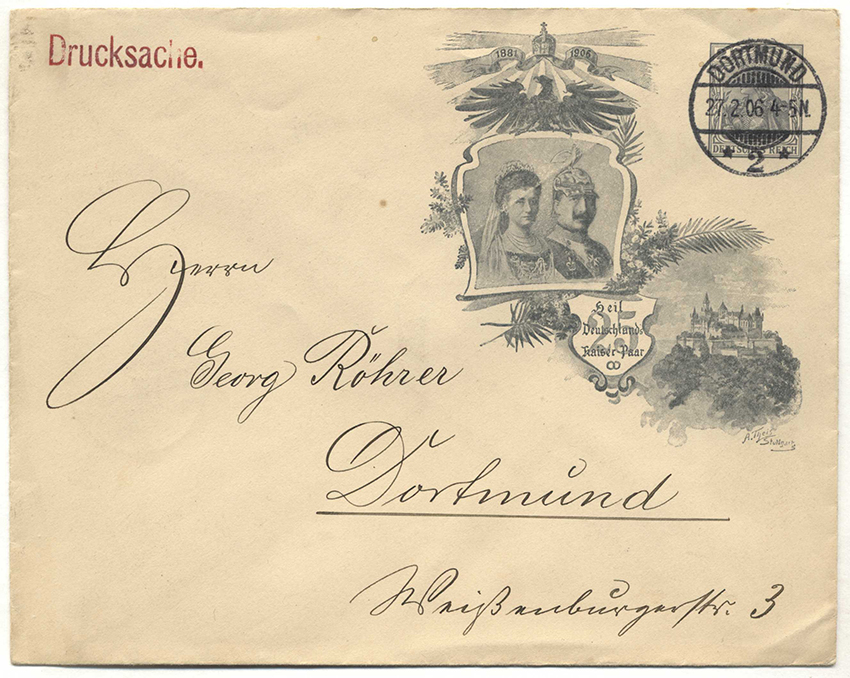 Drucksache.
1881 1906
DORTMUND
27.2.06 4-5N.
* 2 *
DEUTSCHES REICH
25
Heil
Deutschlands
Kaiser-Paar
Herrn
Georg Röhrer
Dortmund
Weißenburgerstr. 3
Stuttgart